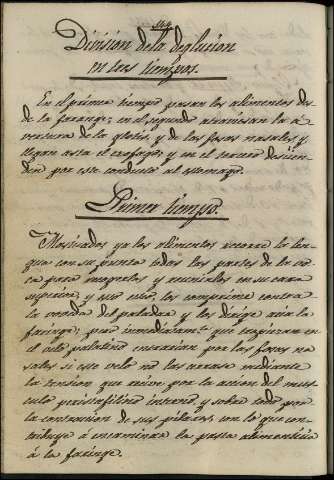 Division de la deglucion
en tres tiempos.
En el primer tiempo pasan los alimentos des
de la faringe; en el segundo atraviesan la a
vertura de la glotis, y de las fosas nasales y
llegan asta el esofago; y en el tercero descien
den por este conducto al estomago.
Primer tiempo.
Masticados ya los alimentos recorre la len
gua con su punta todas las partes de la vo
ca para recogerlos y reunirlos en su cara
superior, y echo esto, los comprime contra
la voveda del paladar y los dirige acia la
faringe; pero inmediatamte. que tropiezan en
el velo palatino entrarian por las fosas na
sales si este velo no las cerrase mediante
la tension que recive por la accion del mus
culo peristafilino interno, y sobre todo por
la contracion de sus pilares, con lo que con
tribuye á encaminar la pasta alimenticia
á la faringe.